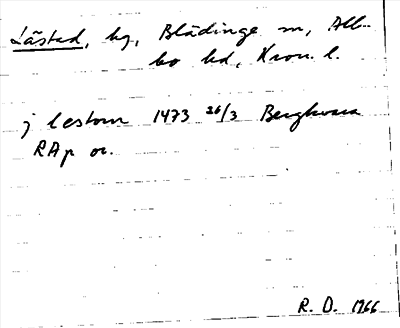 Låstad, by, Blädinge sn, All-
bo hd, Kron. l.
j lestom 1473 26/3 Bergkvara
RAp or.
R. D. 1966